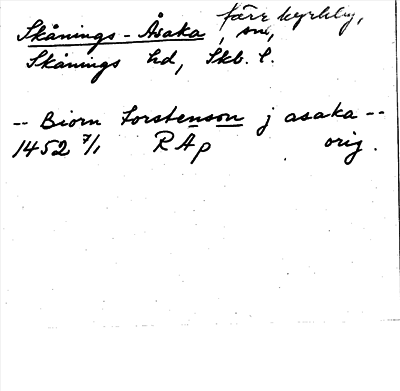 Skånings-Åsaka, förr kyrkby, sn,
Skånings hd, Skb. l.
-- Biorn Torstenson j asaka --
1452 7/1 RAp orig.